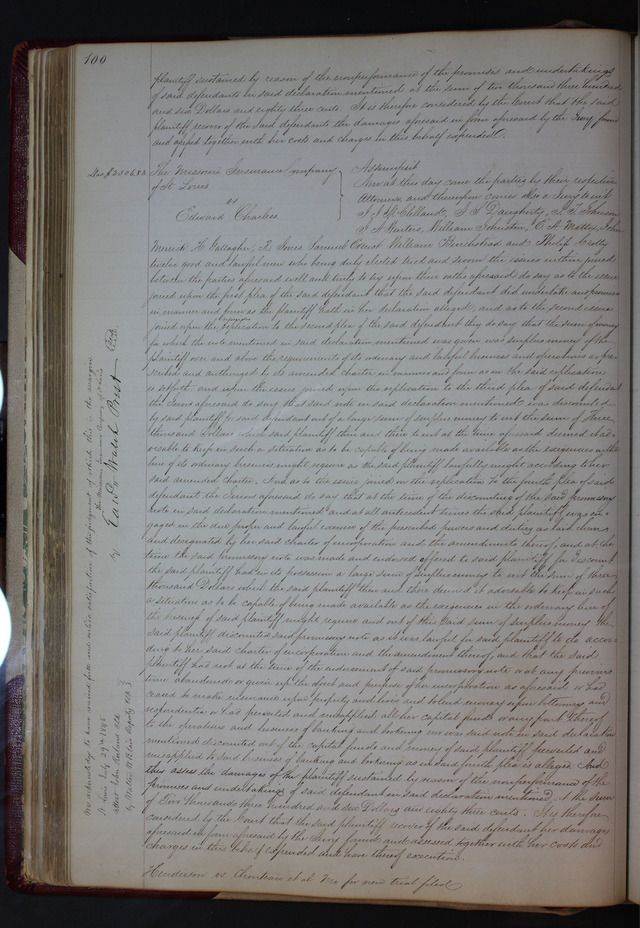 100
plaintiff sustained by reason of the nonperformance of the promises and undertakings
of said defendants in said declaration mentioned at the sum of ten thousand three hundred
and six Dollars and eighty three cents. It is therefore considered by the Court that the said
plaintiff recover of the said defendants the damages aforesaid in form aforesaid by the Jury found
and assessed together with her costs and charges in this behalf expended.
The Missouri Insurance Company
of St Louis
vs
Edward Charless
Assumpsit
Now at this day come the parties by their respective
Attorneys and thereupon comes also a Jury to wit
Daugherty,
William Johnston, John
Merrick H Gallagher, Jones Samuel William and Philip
twelve good and lawful men who being duly elected tried and sworn the issues within joined
between the parties aforesaid well and truly to try upon their oaths aforesaid do say as to the issue
joined upon the first plea of the said defendant that the said defendant did undertake and promise
in manner and form as the plaintiff hath in her declaration alleged, and as to the second issue
joined upon the replication to the second plea of the said defendant they do say that the sum of money
for which the note mentioned in said declaration mentioned was given was surplus money of the
plaintiff over and above the requirements of its ordinary and lawful business and operations as pre
scribed and authorized by its amended charter in manner and form as in the said replication
is set forth, and upon the issue joined upon the replication to the third plea of said defendant
the Jurors aforesaid do say that said note in said declaration mentioned was discounted
by said plaintiff for said defendant out of a large sum of surplus money to wit the sum of Three
thousand Dollars which said plaintiff then and there to wit at the time aforesaid deemed it ad
visable to keep in such a situation as to be capable of being made available as the exigencies in the
line of its ordinary business might require as the said plaintiff lawfully might according to her
said amended charter. And as to the issue joined on the replication to the fourth plea of said
defendant the Jurors aforesaid do say that at the time of the discounting of the said promissory
note in said declaration mentioned and at all antecedent times the said plaintiff was en
gaged in the due proper and lawful exercise of the prescribed powers and duties as laid down
and designated by her said charter of incorporation and the amendments thereof, and at the
time the said promissory note was made and endorsed offered to said plaintiff for discount
the said plaintiff had in its possession a large sum of surplus money to wit the sum of three
thousand Dollars which the said plaintiff then and there deemed it advisable to keep in such
a situation as to be capable of being made available as the exigencies in the ordinary line of
the business of said plaintiff might require and out of this said sum of surplus money the
said plaintiff discounted said promissory note as it was lawful for said plaintiff to do accor
ding to her said charter of incorporation and the amendment thereof, and that the said
plaintiff had not at the time of the endorsement of said promissory note or at any previous
time abandoned or given up the object and purpose of her incorporation as aforesaid or had
ceased to make insurance upon property and lives and to lend money upon bottomry and
respondentia or had perverted and misapplied all her capital funds or any part thereof
to the operations and business of banking and brokering nor was said note in said declaration
mentioned discounted out of the capital funds and money of said plaintiff perverted and
misapplied to said business of banking and brokering as in said fourth plea is alleged And
they assess the damages of the plaintiff sustained by reason of the nonperformance of the
promises and undertakings of said defendant in said declaration mentioned at the sum
of Two thousand three hundred and six Dollars and eighty three cents. It is therefore
considered by the Court that the said plaintiff recover of the said defendant her damages
aforesaid in form aforesaid by the Jury found and assessed together with her costs and
charges in this behalf expended and have thereof execution.
Henderson vs Chouteau et al Mo for new trial filed
We acknowledge to have received full and entire satisfaction of the judgment of which this is the margin
St Louis July 29th 1845
The Missouri Insurance Company of St Louis
by Edwd Walsh Prest
attest John Ruland Clk